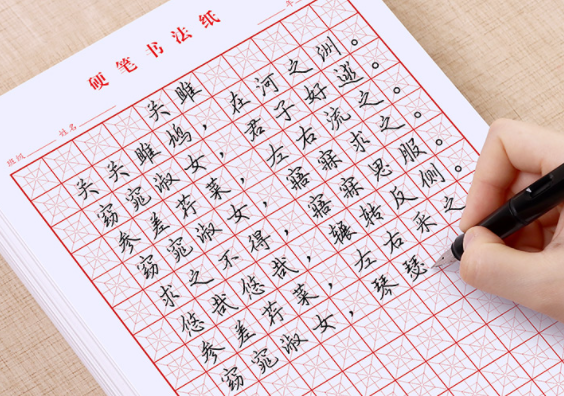 硬笔书法纸
班级 姓名 年
关雎
关关雎鸠，在河之洲。
窈窕淑女，君子好逑。
参差荇菜，左右流之。
窈窕淑女，寤寐求之。
求之不得，寤寐思服。
悠哉悠哉，辗转反侧。
参差荇菜，左右采之
窈窕淑女，琴瑟